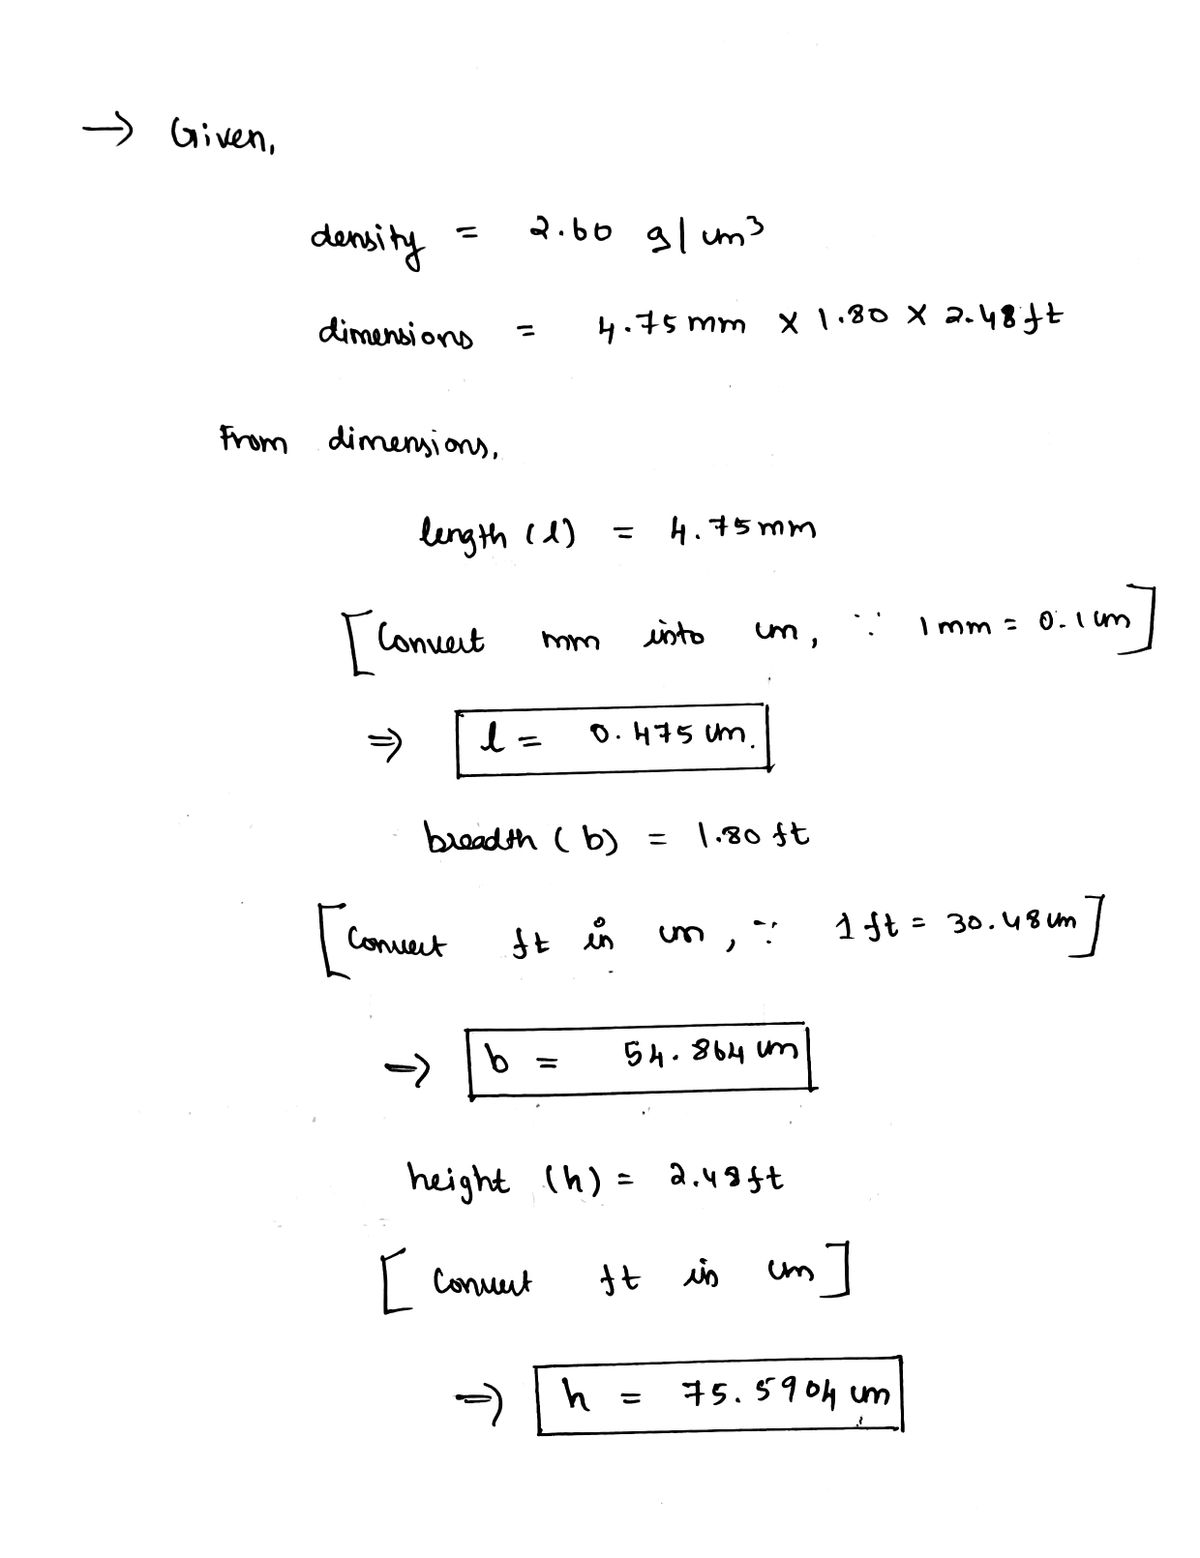 → Given,
density = 2.60 g/cm³
dimensions = 4.75 mm × 1.80 × 2.48 ft
From dimensions,
length (l) = 4.75 mm
[Convert mm into cm, ∵ 1 mm = 0.1 cm]
⇒ l = 0.475 cm.
breadth (b) = 1.80 ft
[Convert ft in cm, ∵ 1 ft = 30.48 cm]
⇒ b = 54.864 cm
height (h) = 2.48 ft
[Convert ft in cm]
⇒ h = 75.5904 cm